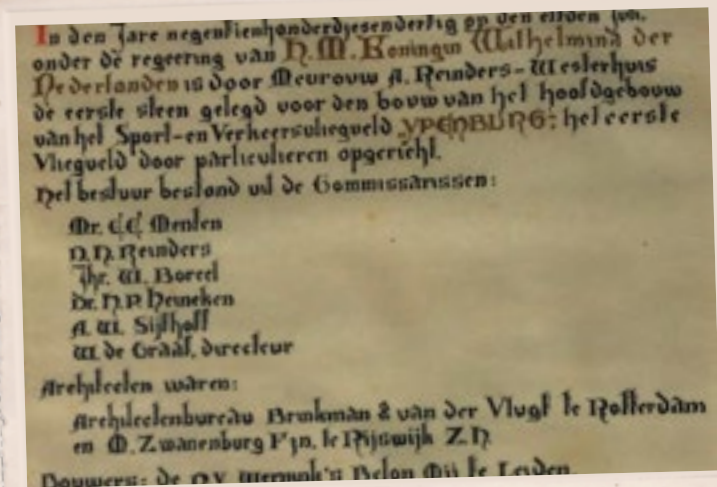 In den Jare negentienhonderdzesendertig op den elfden Juli,
onder de regeering van H.M. Koningin Wilhelmina der
Nederlanden is door Mevrouw A. Reinders-Westerhuis
de eerste steen gelegd voor den bouw van het hoofdgebouw
van het Sport-en Verkeersvliegveld YPENBURG: het eerste
Vliegveld door particulieren opgericht.
Het bestuur bestond uit de Commissarissen:
Mr. C.C. Menten
H.H. Reinders
Jhr. W. Boreel
Dr. H.P. Heineken
A.W. Sijthoff
W. de Graaf, directeur
Architecten waren:
Architectenbureau Brinkman & van der Vlugt te Rotterdam
en D. Zwanenburg Fzn. te Rijswijk Z.H.
Bouwers: de N.V. Beton Mij te Leiden.